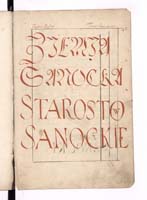 ZIEMIA
SANOCKA.
STAROSTWO
SANOCKIE